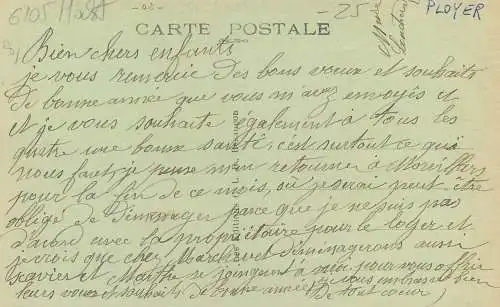 6105 Host
-25
PLOYER
CARTE POSTALE
Bien chers enfants
je vous remercie des bons voeux et souhaits
de bonne année que vous m'avez envoyés et
et je vous souhaite également à tous les
quatre une bonne santé, c'est surtout ce qui
vous faut, je pense m'en retourner à
pour la fin de ce mois, où je serai peut être
obligé de déménager parce que je ne suis pas
d'acord avec la propriétaire pour le loyer et
je crois que chez Marchevel déménagerons aussi
Xavier et Marthe se joingnent à moi pour vous offrir
leurs voeux et souhaits de bonne année je vous embrasse bien
de tout coeur